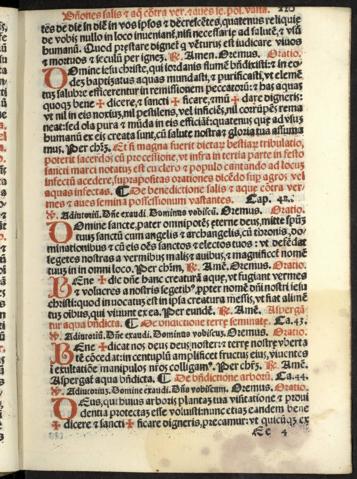 Oñones salis & aq̃ cõtra ver. & aues le. pol. vasta. 220
tes de die in diē in vos ipsos & decrescētes, quatenus reliquie
de vobis nullo in loco inueniant̃, nisi necessarie ad salutē, & vsū
humanū. Quod prestare dignet̃ q̃ vēturus est iudicare viuos
& mortuos & seculū per ignez. ℟. Amen. Oremus. Oratio.
Domine iesu christe, qui iordanis flumē bñdixisti: & in eo
dez baptizatus aquas mundasti, & purificasti, vt elemē
tus salubre efficerentur in remissionem peccatorũ: & has aquas
quoqz bene ✠ dicere, & sancti ✠ ficare, &mũ ✠ dare digneris:
vt nil in eis noxius, nil pestilens, vel inficiēs, nil corrūpēs rema
neat: sed oīa pura & mūda in eis efficiāt̃: quatenus que ad vsus
humanū ex eis creata sunt, cū salute nostra & gloria tua assuma
mus. Per chr̃m. Et si magna fuerit dictaꝝ bestiaꝝ tribulatio,
poterit sacerdos cū processione, vt infra in tertia parte in festo
sancti marci notatuȝ est cū clero & populo cantando ad locus
infectū accedere, suprapositas orationes dicēdo sup agros vel
aquas infectas. ¶ De benedictione salis & aque cōtra ver-
mes & aues semina & possessionum vastantes. Cap. 42.
℣. Adiutoriũ. Dñe exaudi. Dominus vobiscũ. Oremus. Oratio.
Domine sancte, pater omnipotēs eterne deus, mitte spūs
tuus sanctū cum angelis & archangelis, cū thronis, do-
minationibus & cū eis oēs sanctos & electos tuos: vt defēdat
segetes nostras a vermibus malis & auibus, & magnificet nomē
tuus in in omni loco. Per chr̃m. ℟. Amē. Oremus. Oratio.
Bene ✠ dic dñe banc creaturā aque, vt fugiant vermes
& volucres a nostris segetibꝰ, ppter nomē dñi nostri iesu
christi: quod inuocatus est in ipsa creatura messis, vt fiat alimē
tus oībus, qui viuunt ex ea. Per eundē. ℟. Amē. Aspergā
tur aqua bñdicta. ¶ De bñdictione terre seminate. Ca. 43.
℣. Adiutoriũ. Dñe exaudi. Dominus vobiscus. Oremus. Oratio.
Bene ✠ dicat nos deus deus noster: & terre nostre vberta
tē cōcedat: in centuplū amplificet fructus eius, viuentes
& exultatiōe manipulos nr̃os colligam̃. Per chr̃m. ℟. Amē.
Aspergat̃ aqua bñdicta. ¶ De bñdictione arborũ. Ca. 44.
℣. Adiutorius. Domine exaudi. Dñs vobiscum. Oremus. Oratio.
Deus, qui huius arboris plantas tua visitatione & proui
dentia protectas esse voluisti: nunc etiaz eandem bene
✠ dicere & sancti ✠ ficare digneris, precamur: vt quicūqz ex
Ee 4